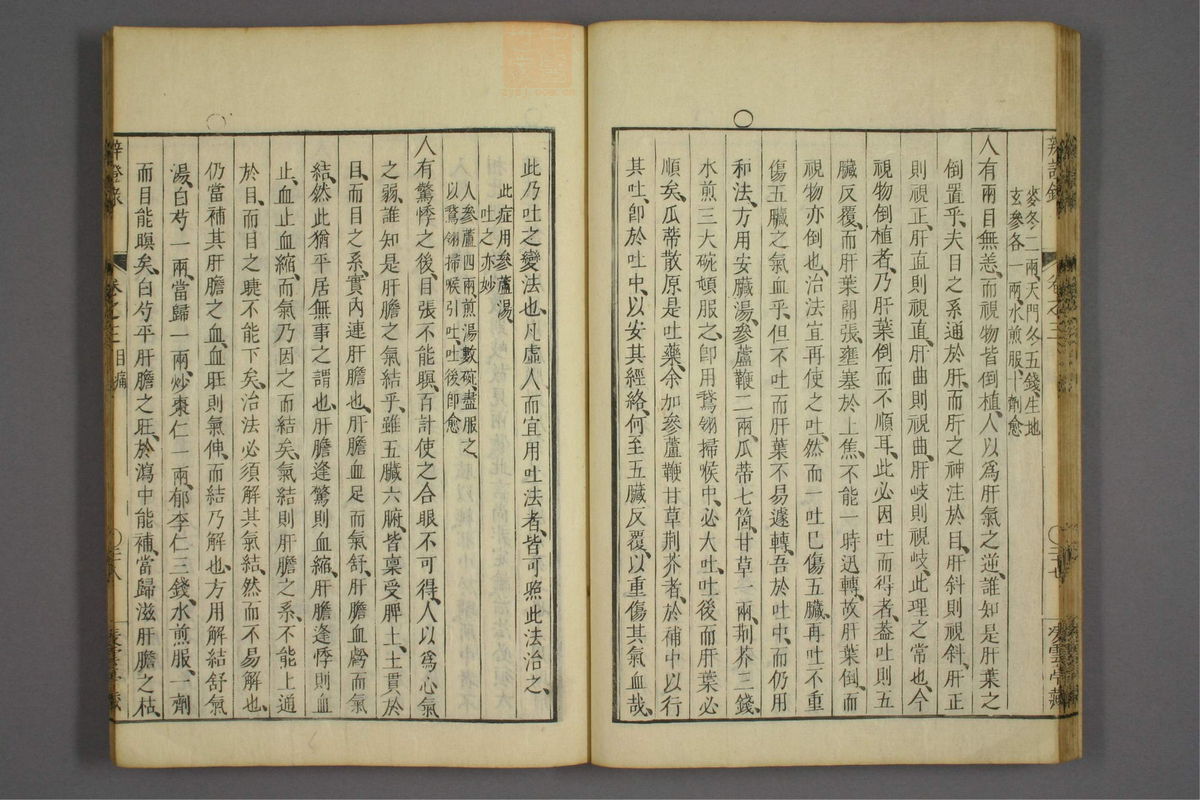 麥冬二兩、天門冬五錢、生地
玄參各一兩、水煎服、十劑愈
人有兩目無恙、而視物皆倒植、人以爲肝氣之逆、誰知是肝葉之
倒置乎、夫目之系通於肝、而肝之神注於目、肝斜則視斜、肝正
則視正、肝直則視直、肝曲則視曲、肝岐則視岐、此理之常也、今
視物倒植者、乃肝葉倒而不順耳、此必因吐而得者、蓋吐則五
臟反覆、而肝葉開張、壅塞於上焦、不能一時迅轉、故肝葉倒、而
視物亦倒也、治法宜再使之吐、然而一吐已傷五臟、再吐不重
傷五臟之氣血乎、但不吐而肝葉不易遽轉、吾於吐中、而仍用
和法、方用安臟湯、參蘆鞭二兩、瓜蒂七箇、甘草一兩、荆芥三錢、
水煎三大碗、頓服之、卽用鵞翎掃喉中、必大吐、吐後而肝葉必
順矣、瓜蒂散原是吐藥、余加參蘆鞭甘草荆芥者、於補中以行
其吐、卽於吐中、以安其經絡、何至五臟反覆、以重傷其氣血哉、
此乃吐之變法也、凡虛人而宜用吐法者、皆可照此法治之、
此症用參蘆湯、
吐之亦妙
人參蘆四兩煎湯數碗、盡服之、
以鵞翎掃喉引吐、吐後卽愈
人有驚悸之後、目張不能瞑、百計使之合眼不可得、人以爲心氣
之弱、誰知是肝膽之氣結乎、雖五臟六腑、皆稟受脾土、土貫於
目、而目之系、實內連肝膽也、肝膽血足而氣舒、肝膽血虧而氣
結、然此猶平居無事之謂也、肝膽逢驚則血縮、肝膽逢悸則血
止、血止血縮、而氣乃因之而結矣、氣結則肝膽之系、不能上通
於目、而目之睫不能下矣、治法必須解其氣結、然而不易解也、
仍當補其肝膽之血、血旺則氣伸、而結乃解也、方用解結舒氣
湯、白芍一兩、當歸一兩、炒棗仁一兩、郁李仁三錢、水煎服、一劑
而目能瞑矣、白芍平肝膽之旺、於瀉中能補、當歸滋肝膽之枯、
辨證錄 卷之三 目痛